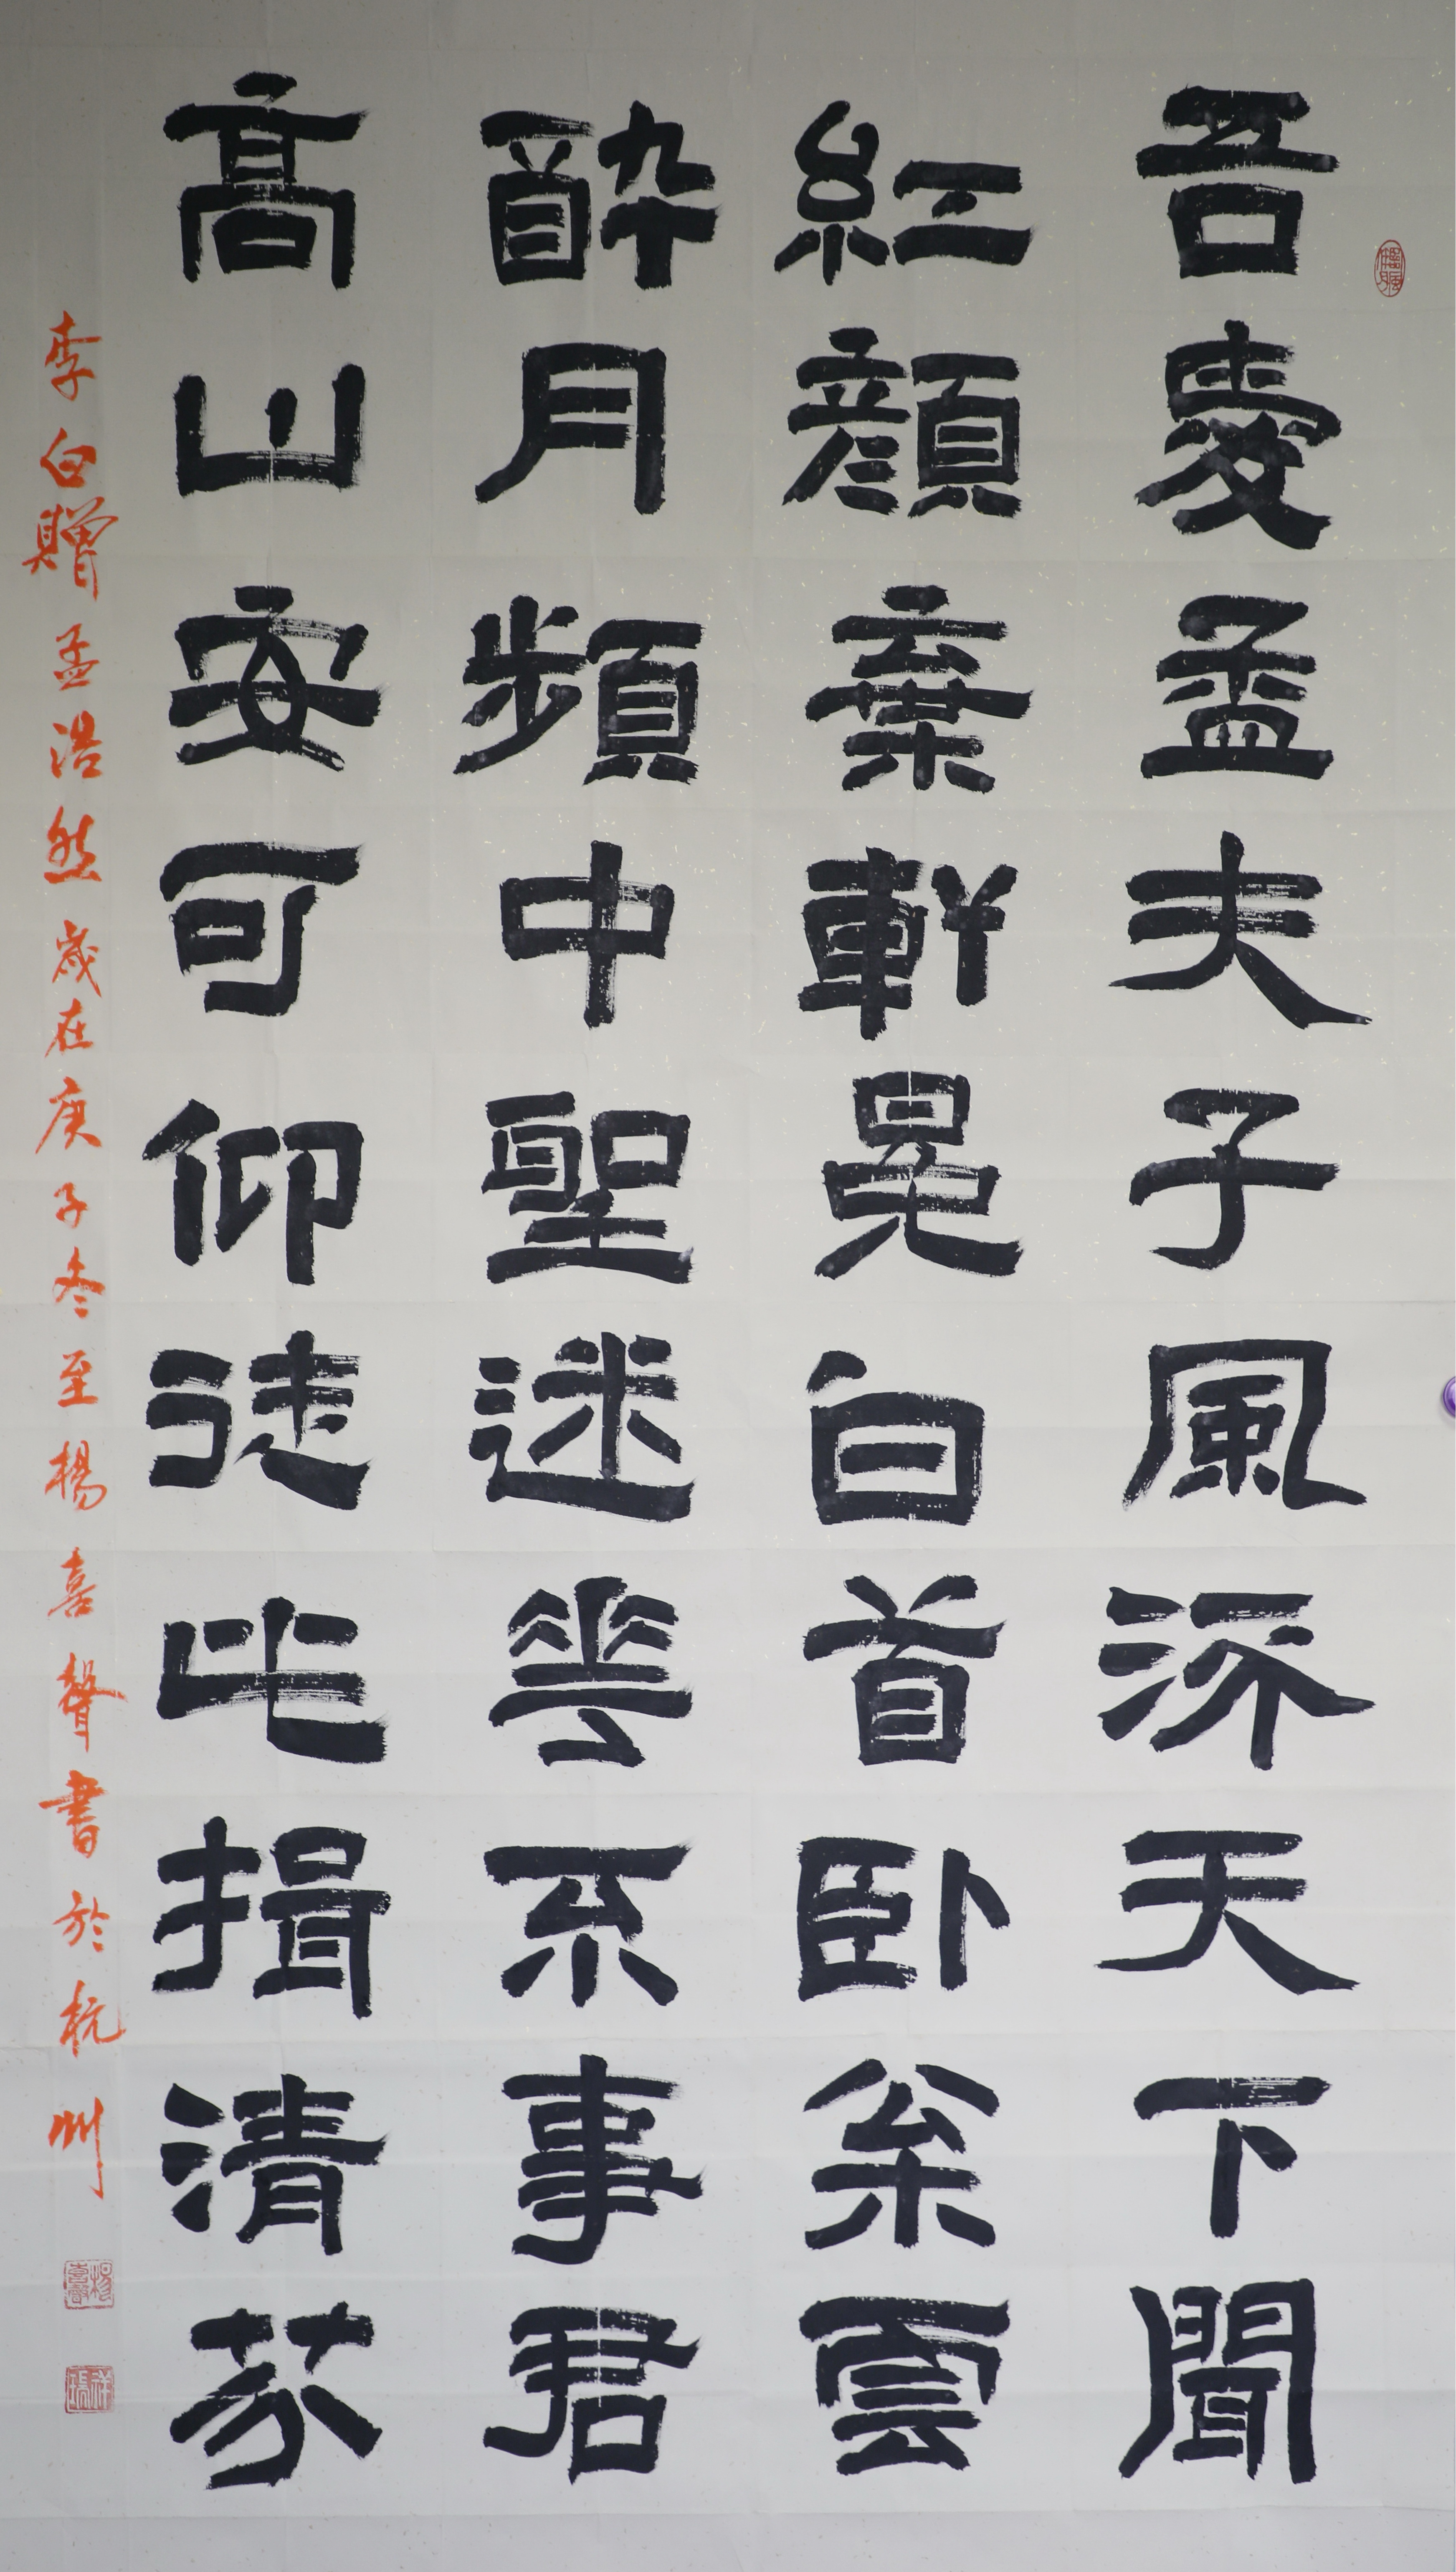 吾愛孟夫子風流天下聞
紅顏棄軒冕白首臥松雲
醉月頻中聖迷花不事君
高山安可仰徒此揖清芬
李白贈孟浩然歲在庚子冬至楊喜聲書於杭州